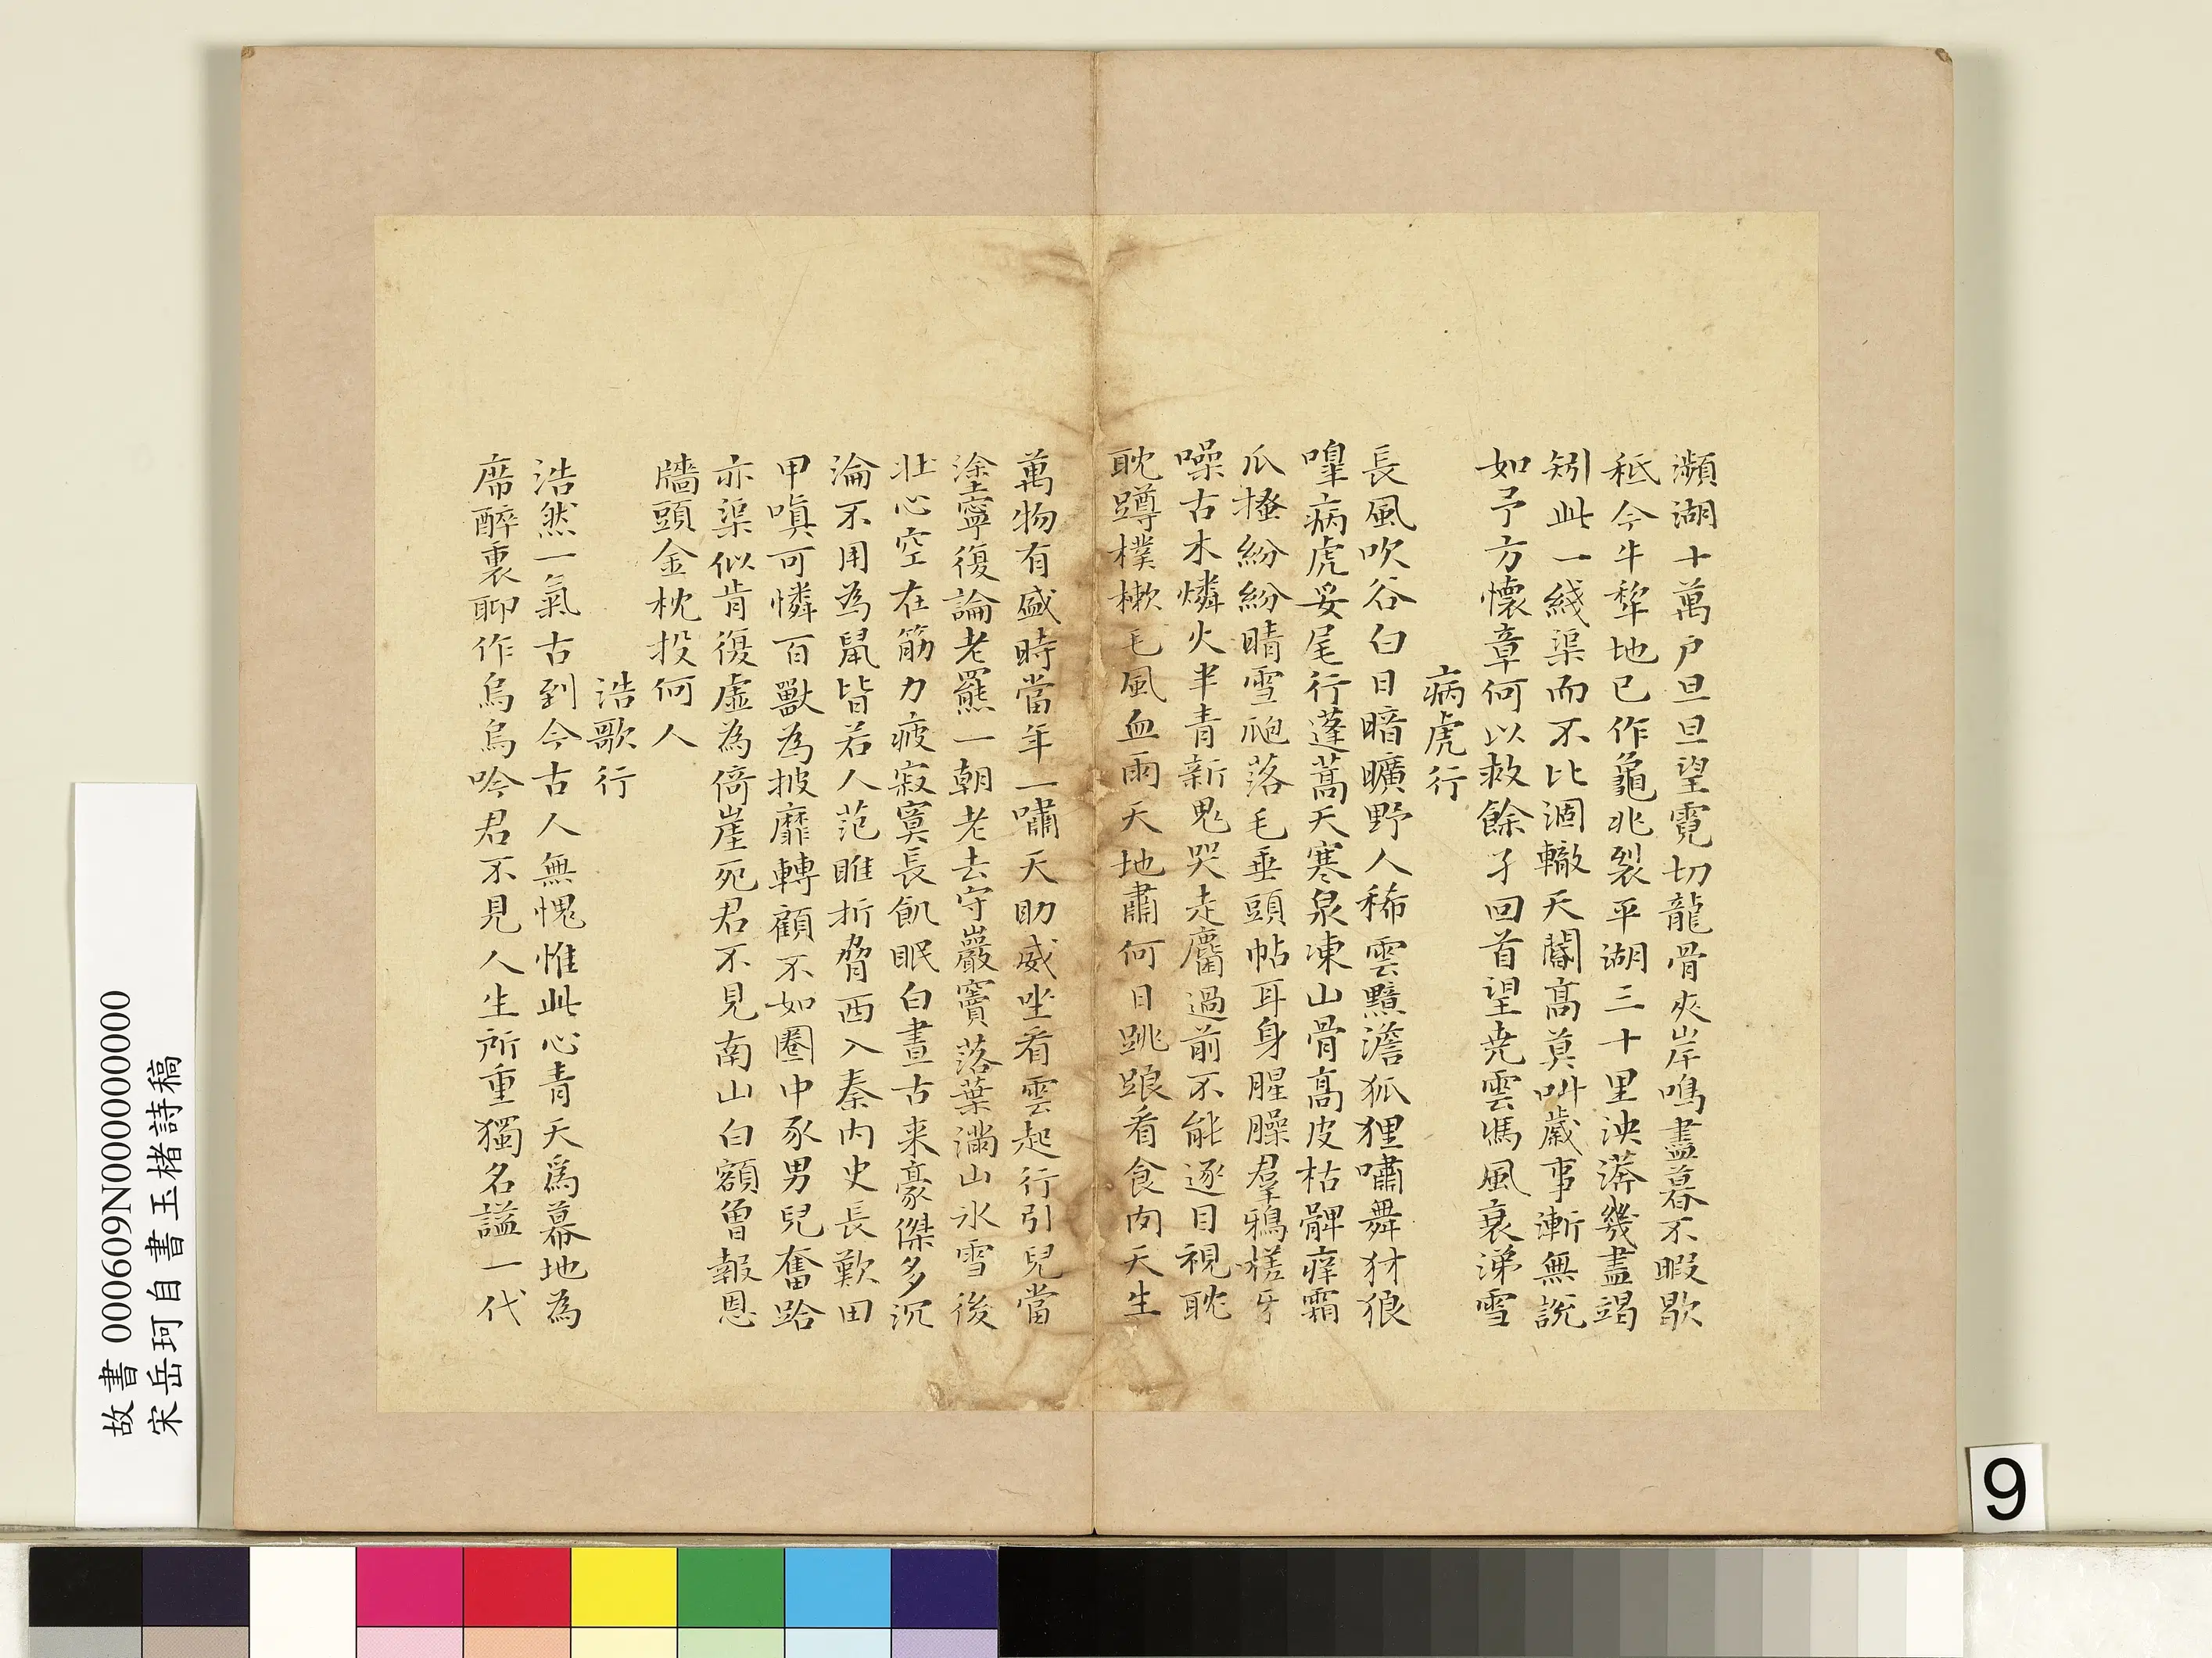 瀕湖十萬戶旦旦望霓切龍骨夾岸鳴盡暮不暇歇
秪今牛犂地已作龜兆裂平湖三十里泱漭幾盡竭
矧此一綫渠而不比涸轍天闊高莫叫歲事漸無說
如予方懷章何以救餘孑回首望堯雲馮風衰涕雪
病虎行
長風吹谷白日暗曠野人稀雲黯澹狐狸嘯舞豺狼
嘷病虎妥尾行蓬蒿天寒泉凍山骨高皮枯髀痒霜
爪搔紛紛晴雪爮落毛垂頭帖耳身腥臊羣鴉槎牙
噪古木燐火半青新鬼哭走麕過前不能逐目視耽
耽蹲樸樕毛風血雨天地肅何日跳踉看食肉天生
萬物有盛時當年一嘯天助威坐看雲起行引兒當
塗寧復論老羆一朝老去守巖竇落葉滿山冰雪後
壯心空在筋力疲寂寞長飢眠白晝古来豪傑多沉
淪不用為鼠皆若人范睢折脅西入秦内史長歎田
甲嗔可憐百獸為披靡轉顧不如圈中豕男兒奮跲
亦渠似肯復虛為倚崖死君不見南山白額曾報恩
牆頭金枕投何人
浩歌行
浩然一氣古到今古人無愧惟此心青天爲幕地為
席醉裏聊作烏烏吟君不見人生所重獨名謚一代
故書000609N000000000
宋岳珂自書玉楮詩稿
9